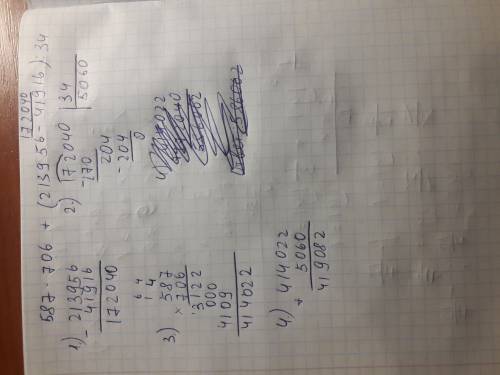 172040
587 · 706 + (213956 - 41916) : 34
1) - 213956
41916
172040
2) 172040 | 34
- 170 5060
204
- 204
0
3) 64
14
× 587
706
3122
000
4109
414022
4)
4) 414022
+ 5060
419082